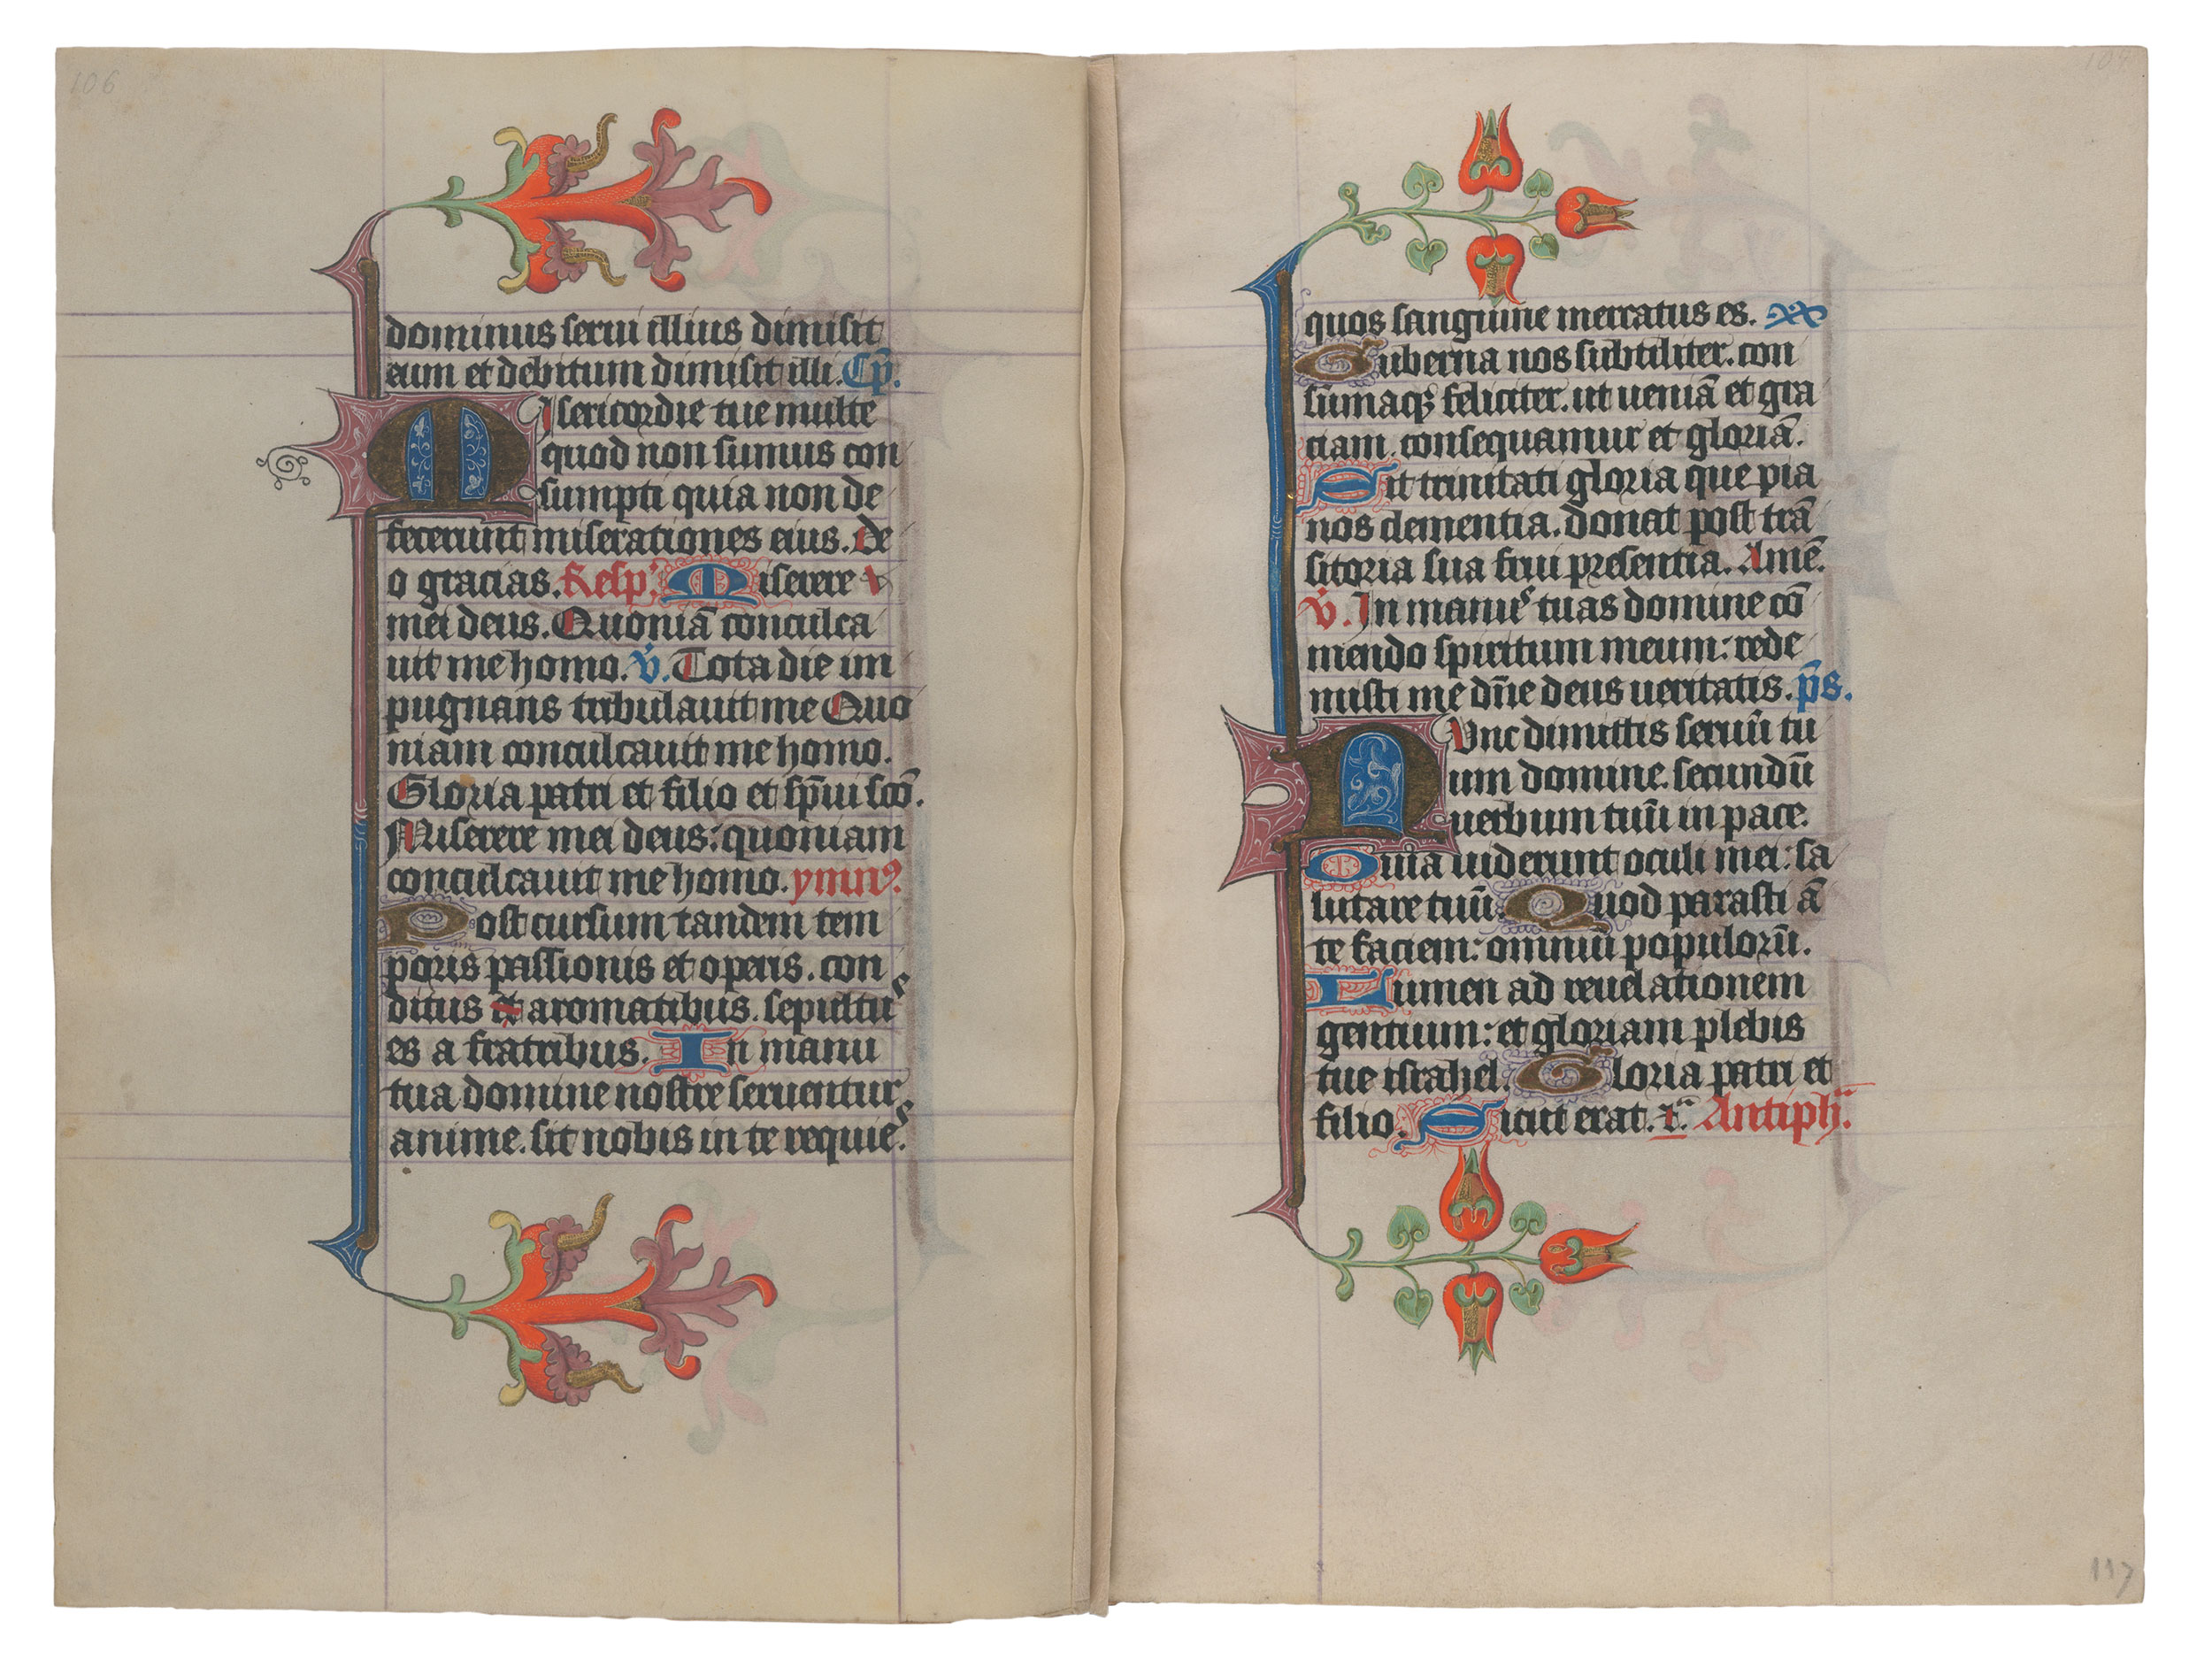 106
dominus serui illius dimisit
eum et debitum dimisit illi. Cp̄.
Misericordie tue multe
quod non sumus con
sumpti quia non de
fecerunt miserationes eius. de
o gracias. Resp. Miserere
mei deus. Quoniā conculca
uit me homo. V̇. Tota die im
pugnans tribulauit me Quo
niam conculcauit me homo.
Gloria patri et filio et sp̄iui scō.
Miserere mei deus: quoniam
conculcauit me homo. ymnꝰ.
Post cursum tandem tem
poris passionis et operis. con
ditus et aromatibus. sepultuˢ
es a fratribus. In manu
tua domine nostre seruentur
anime. sit nobis in te requieˢ.
quos sanguine mercatus es.
Guberna nos subtiliter. con
sūmaqꝫ feliciter. ut ueniā et gra
ciam. consequamur et gloriā.
Sit trinitati gloria que pia
nos clementia. donat post trā
sitoria sua frui presentia. Amē.
V̇. In manuˢ tuas domine cō
mendo spiritum meum: rede
misti me dn̄e deus ueritatis. p̄s.
NVnc dimittis seruū tu
um domine. secundū
uerbum tuū in pace.
Quia uiderunt oculi mei: sa
lutare tuū. Quod parasti ā
te faciem: omniū populorū.
Lumen ad reuelationem
gentium: et gloriam plebis
tue israhel. Gloria patri et
filio. Sicut erat. ⁊. Antiph.
117